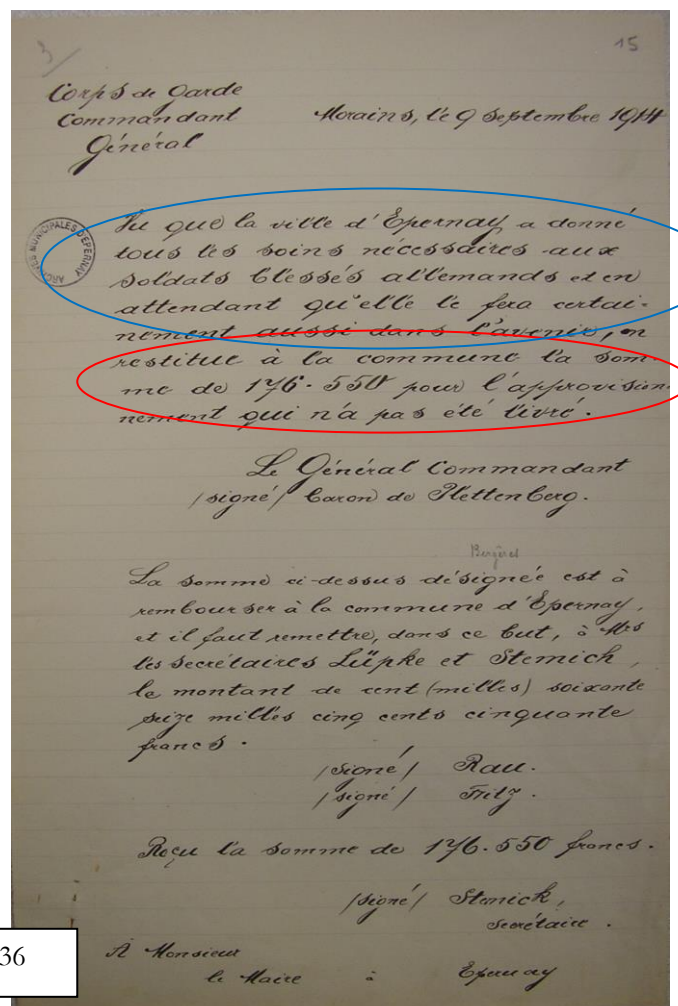 3/
15
Corps de Garde
Commandant
Général
Morains, le 9 Septembre 1914
ARCHIVES MUNICIPALES D'EPERNAY
Vu que la ville d'Epernay a donné
tous les soins nécessaires aux
soldats blessés allemands et en
attendant qu'elle le fera certai-
nement aussi dans l'avenir, on
restitue à la commune la som-
me de 176.550 pour l'approvision-
nement qui n'a pas été livré.
Le Général Commandant
/signé/ baron de Plettenberg.
Bergères
La somme ci-dessus désignée est à
rembourser à la commune d'Epernay,
et il faut remettre, dans ce but, à Mrs
les secrétaires Lüpke et Stemick,
le montant de cent (milles) soixante
seize milles cinq cents cinquante
francs.
/signé/ Rau.
/signé/ Fritz.
Reçu la somme de 176.550 francs.
/signé/ Stemick,
Secrétaire.
36
A Monsieur
le Maire à Epernay